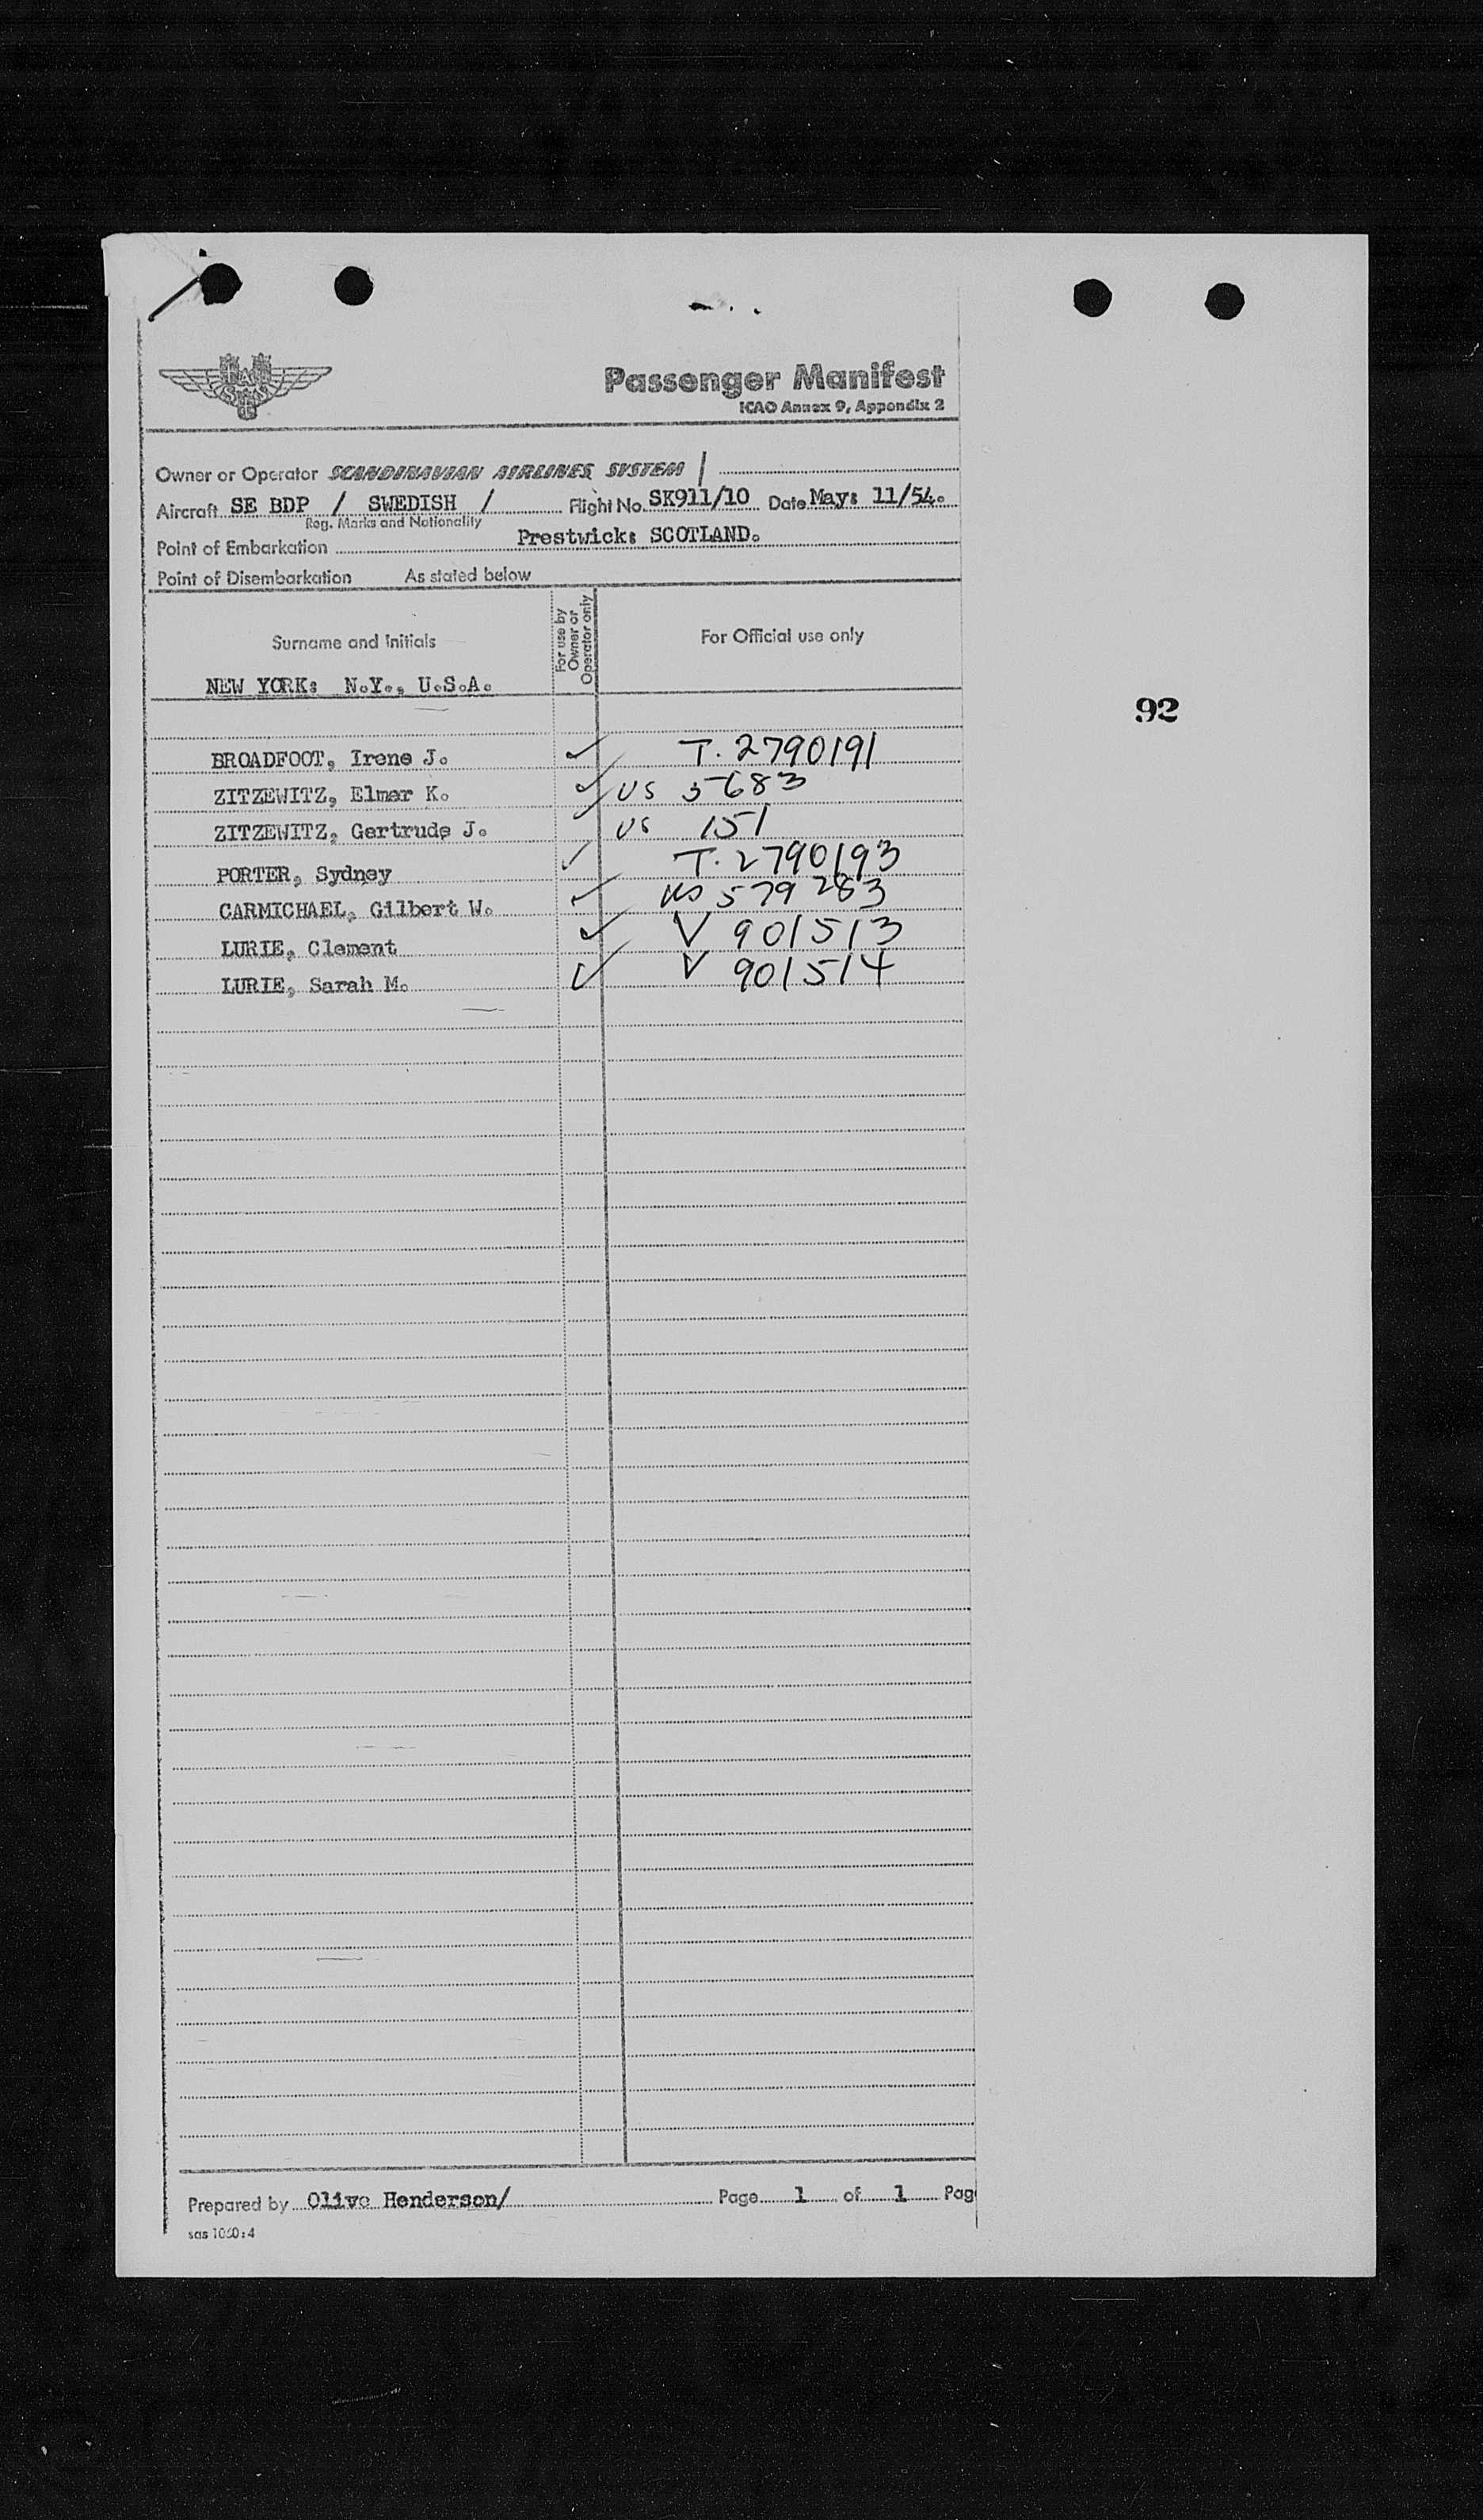 SAS
Passenger Manifest
ICAO Annex 9, Appendix 2
Owner or Operator SCANDINAVIAN AIRLINES SYSTEM /
Aircraft SE BDP / SWEDISH / Flight No. SK911/10 Date May: 11/54.
Reg. Marks and Nationality
Point of Embarkation Prestwick: SCOTLAND.
Point of Disembarkation As stated below
Surname and Initials
For use by Owner or Operator only
For Official use only
NEW YORK: N.Y., U.S.A.
92
BROADFOOT, Irene J. ✓ T. 2790191
ZITZEWITZ, Elmer K. ✓ US 5683
ZITZEWITZ, Gertrude J. ✓ US 151
PORTER, Sydney ✓ T. 2790193
CARMICHAEL, Gilbert W. ✓ US 579283
LURIE, Clement ✓ V 901513
LURIE, Sarah M. ✓ V 901514
Prepared by Olive Henderson/ Page 1 of 1 Pag
sas 1060:4